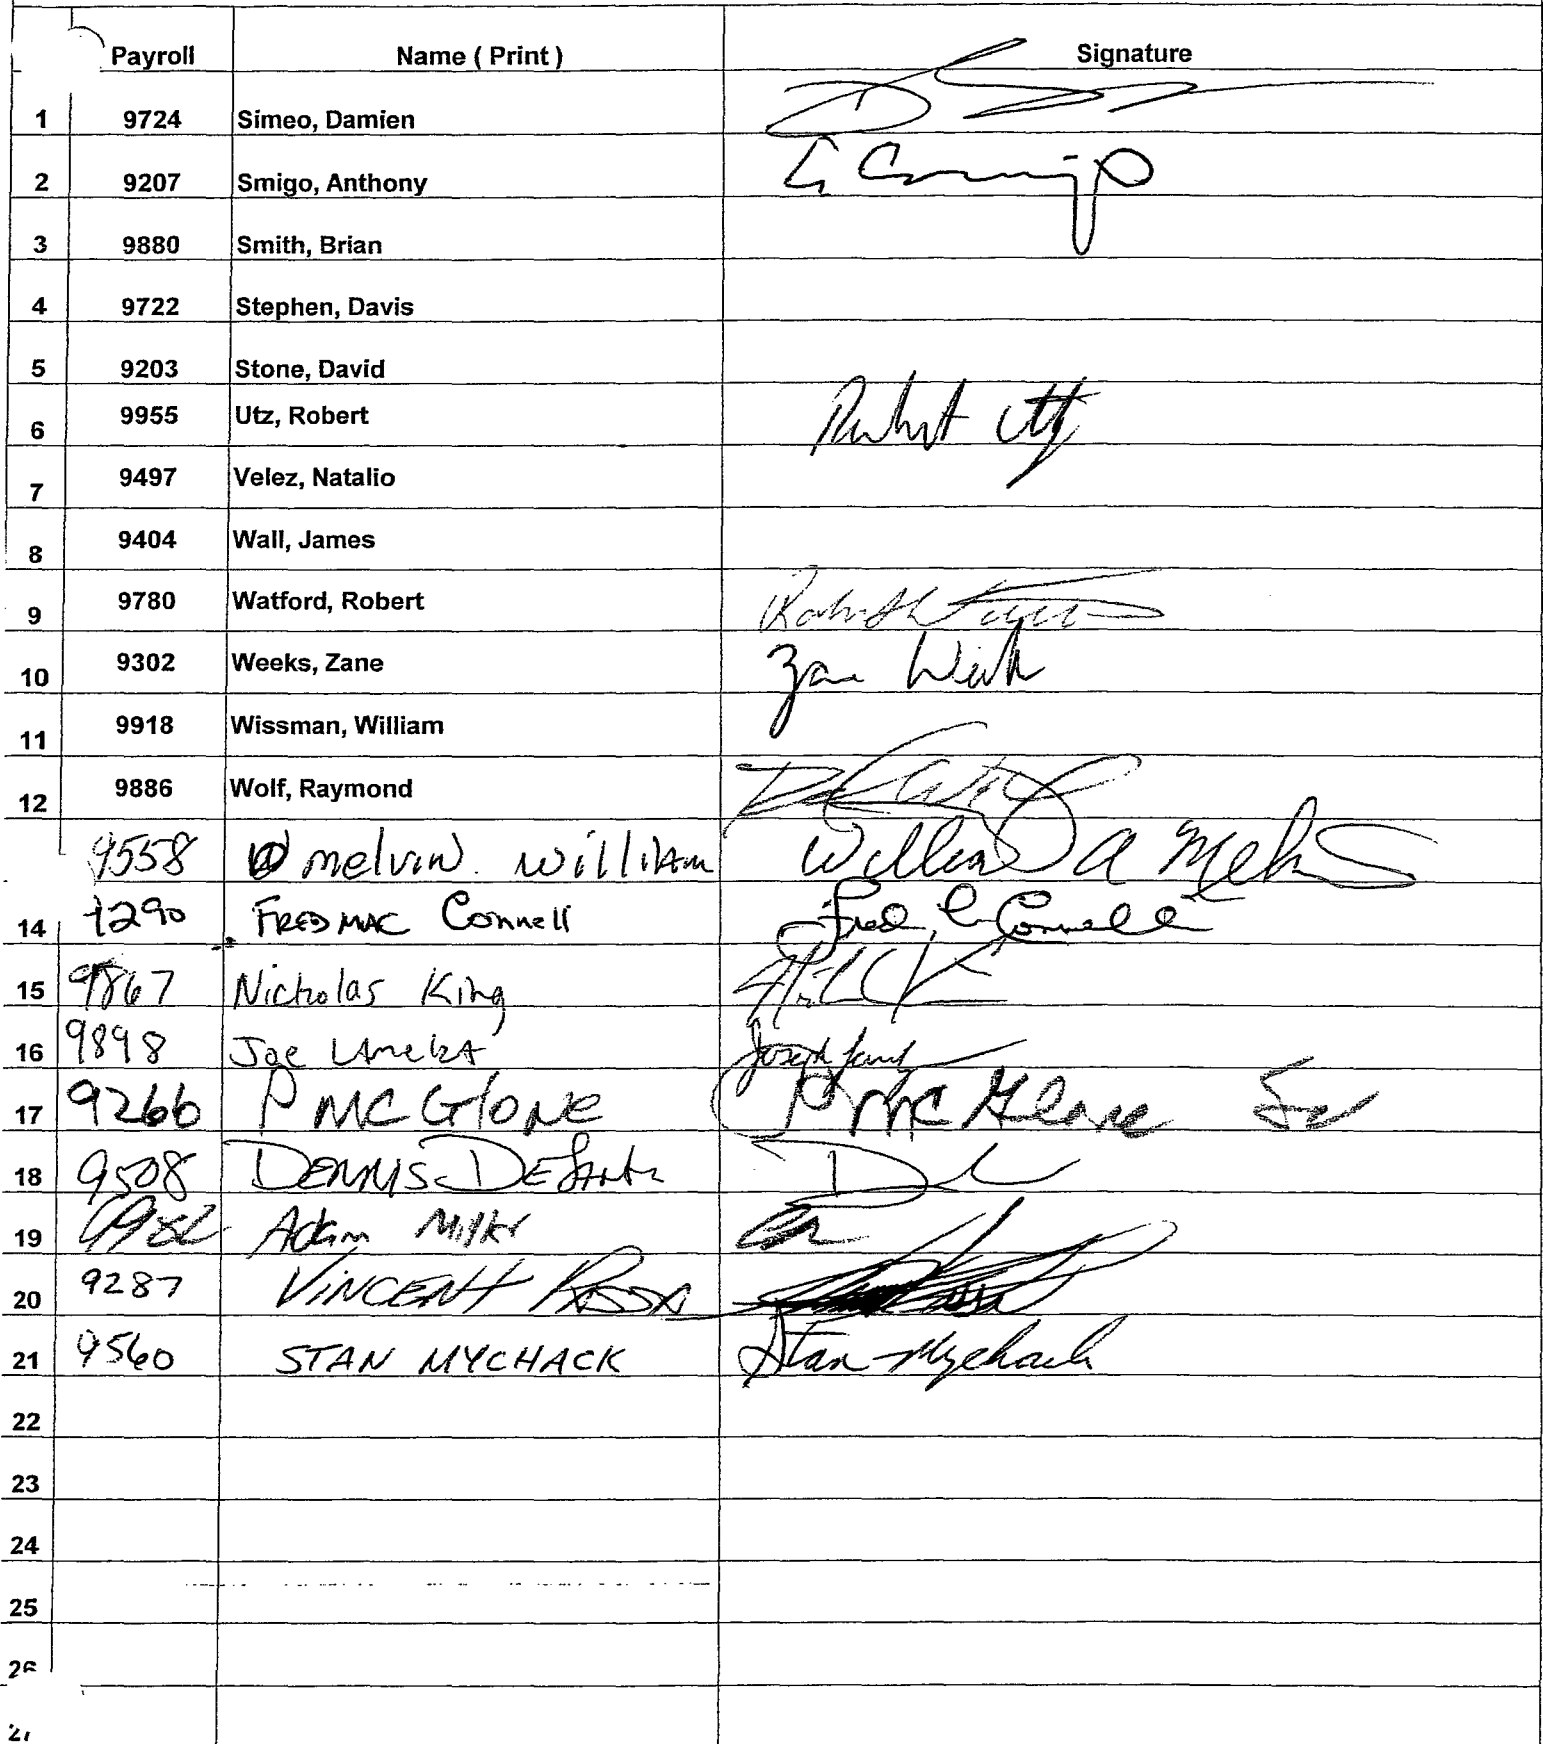 Payroll Name ( Print ) Signature
1 9724 Simeo, Damien
2 9207 Smigo, Anthony
3 9880 Smith, Brian
4 9722 Stephen, Davis
5 9203 Stone, David
6 9955 Utz, Robert Robert Utz
7 9497 Velez, Natalio
8 9404 Wall, James
9 9780 Watford, Robert
10 9302 Weeks, Zane Zane
11 9918 Wissman, William
12 9886 Wolf, Raymond
9558 melvin. william William A
14 9290 FRED MAC Connell Fred Connell
15 9867 Nicholas King
16 9898 Joe Joseph
17 9266 P MC GlONE P MC Glone
18 9508 DENNIS
19 Adam Miller
20 9287 VINCENT
21 9560 STAN MYCHACK Stan Mychack
22
23
24
25
26
27